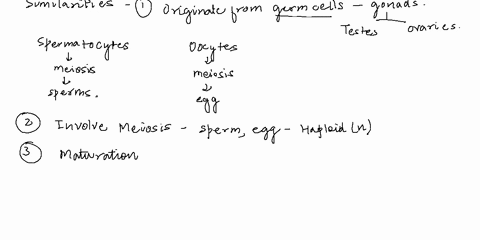 Similarities - ① Originate from germ cells - gonads.
Testes ovaries.
Spermatocytes Oocytes
↓ ↓
meiosis meiosis
↓ ↓
sperms. egg
② Involve Meiosis - sperm, egg - Haploid (n)
③ Maturation